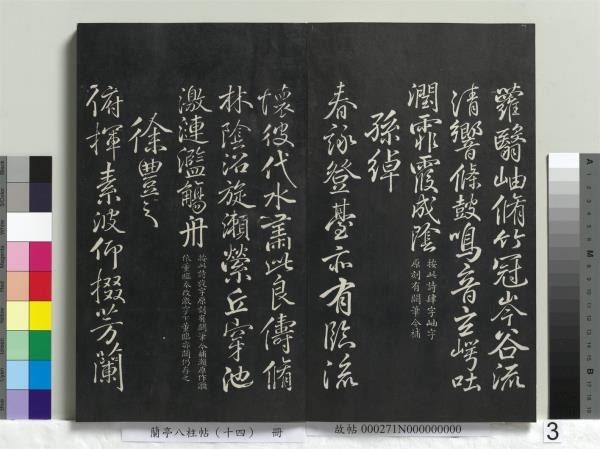 蘿翳岫脩竹冠岑谷流
清響條鼓鳴音玄崿吐
潤霏霞成陰
按此詩肆字岫字
原刻有闕筆今補
孫綽
春詠登臺亦有臨流
懷彼代水肅此良儔脩
林陰沼旋瀨縈丘穿池
激漣濫觴舟
按此詩彼字原刻有闕筆今補瀨原作
依董臨本改激字下董臨亦闕仍存之
徐豐之
俯揮素波仰掇芳蘭
蘭亭八柱帖(十四) 冊
故帖 000271N000000000
3